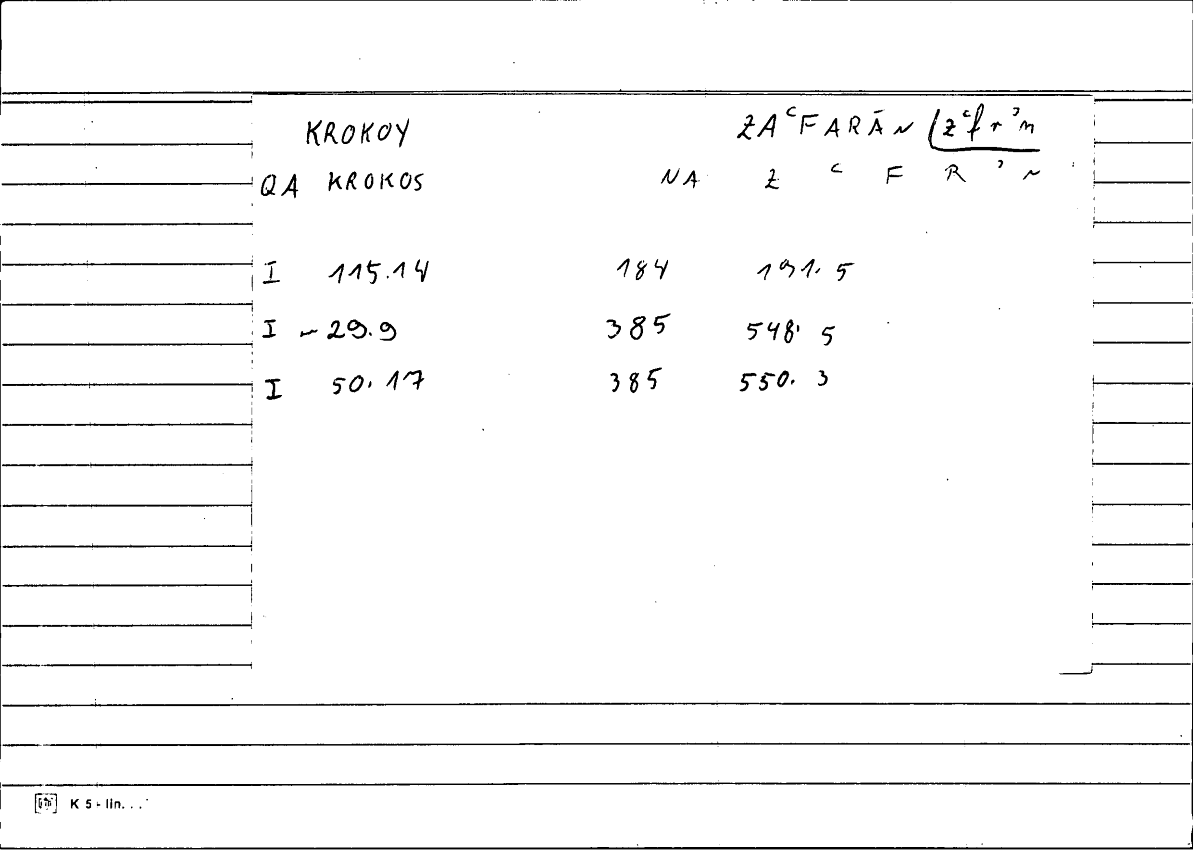 KROKOY ZAʿFARĀN (zʿfrʾn
QA KROKOS NA Z ʿ F R ʾ N
I 115.14 184 191.5
I ~29.9 385 548.5
I 50.17 385 550.3
K 5 - lin. . .